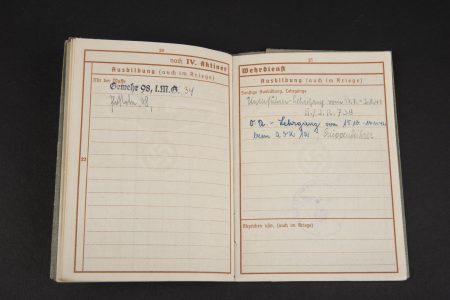 20
noch IV. Aktiver
Ausbildung (auch im Kriege)
Mit der Waffe
Gewehr 98, l.M.G. 34
22
21
Wehrdienst
Ausbildung (auch im Kriege)
Sonstige Ausbildung, Lehrgänge
Unterführer-Lehrgang vom
O.A.-Lehrgang vom 15.10.
beim Gruppenführer
Abzeichen usw. (auch im Kriege)